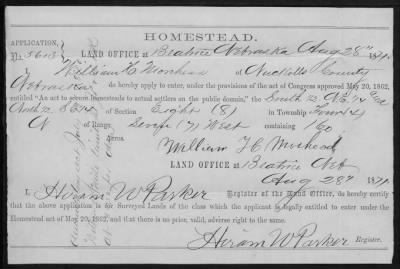 HOMESTEAD.
APPLICATION,
No. 5613
LAND OFFICE at Beatrice Nebraska Aug 28th 187
I, William H. of Nuckolls County
Nebraska do hereby apply to enter, under the provisions of the act of Congress approved May 20, 1862,
entitled "An act to secure homesteads to actual settlers on the public domain," the South ½ N.E. ¼ and
North ½ S.E. ¼ of Section Eight (8) in Township Four (4)
N of Range Seven (7) West containing 160
Acres.
William H.
LAND OFFICE at Beatrice Neb
Aug 28th 187
I, Hiram W Parker Register of the Land Office, do hereby certify
that the above application is for Surveyed Lands of the class which the applicant is legally entitled to enter under the
Homestead act of May 20, 1862, and that there is no prior, valid, adverse right to the same.
Hiram W Parker
Register.